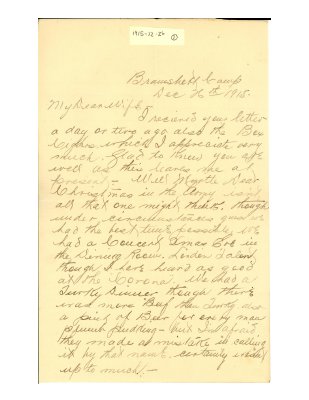 1915-12-26 ①
Bramshott Camp
Dec 26th 1915.
My Dear Wife,
I received your letter
a day or two ago also the Box
Cigars which I appreciate very
much. Glad to know you are
well as this leaves me at
present. Well Myrtle Dear
Christmas in the Army isn't
all that one might think, though
under circumstances guess we
had the best time possible. We
had a Concert Xmas Eve in
the Dining Room, London Talent
though I have heard as good
at the Corona. We had a
Turkey dinner though there
was more Beef than Turkey also
a pint of Beer for every man
Plumb pudding - but I'm afraid
they made a mistake in calling
it by that name. certainly
up to much. -